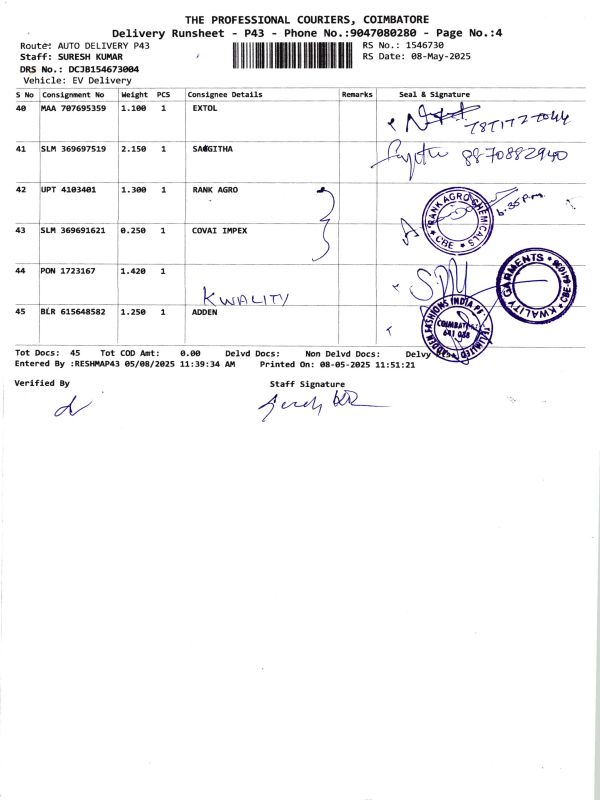 THE PROFESSIONAL COURIERS, COIMBATORE
Delivery Runsheet - P43 - Phone No.:9047080280 - Page No.:4
Route: AUTO DELIVERY P43 RS No.: 1546730
Staff: SURESH KUMAR RS Date: 08-May-2025
DRS No.: DCJB154673004
Vehicle: EV Delivery
S No Consignment No Weight PCS Consignee Details Remarks Seal & Signature
40 MAA 707695359 1.100 1 EXTOL
41 SLM 369697519 2.150 1 SANGITHA 8870882940
42 UPT 4103401 1.300 1 RANK AGRO RANK AGRO CHEMICALS * CBE * 6.35 P.m
43 SLM 369691621 0.250 1 COVAI IMPEX
44 PON 1723167 1.420 1 KWALITY KWALITY GARMENTS * CBE
45 BLR 615648582 1.250 1 ADDEN ADDEN FASHIONS INDIA COIMBATORE
Tot Docs: 45 Tot COD Amt: 0.00 Delvd Docs: Non Delvd Docs: Delvy
Entered By :RESHMAP43 05/08/2025 11:39:34 AM Printed On: 08-05-2025 11:51:21
Verified By Staff Signature